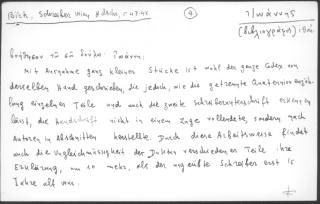 Bick, Schreiber Wien. Hdschr., S. 47.48 4 Ἰωάννης
(βιβλιογράφος)
Mit Ausnahme ganz kleiner Stücke ist wohl der ganze Codex von
derselben Hand geschrieben, die jedoch, wie die getrennte Quaternionenzäh-
lung einzelner Teile und auch die zweite Schreiberunterschrift erkennen
lässt, die Handschrift nicht in einem Zuge vollendete, sondern nach
Autoren in Abschnitten herstellte. Durch diese Arbeitsweise findet
auch die Ungleichmässigkeit der Duktus verschiedener Teile ihre
Erklärung, um so mehr, als der Schreiber erst
Jahre alt war.